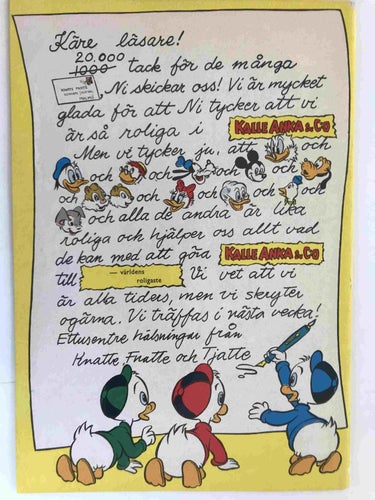 Käre läsare!
20.000
1000 tack för de många
Ni skickar oss! Vi är mycket
glada för att Ni tycker att vi
är så roliga i KALLE ANKA & Co
Men vi tycker ju, att och
och och och och och
och och och och och
och och alla de andra är lika
roliga och hjälper oss allt vad
de kan med att göra KALLE ANKA & Co
till — världens roligaste Vi vet att vi
är alla tiders, men vi skryter
ogärna. Vi träffas i nästa vecka!
Ettusentre hälsningar från
Knatte, Fnatte och Tjatte